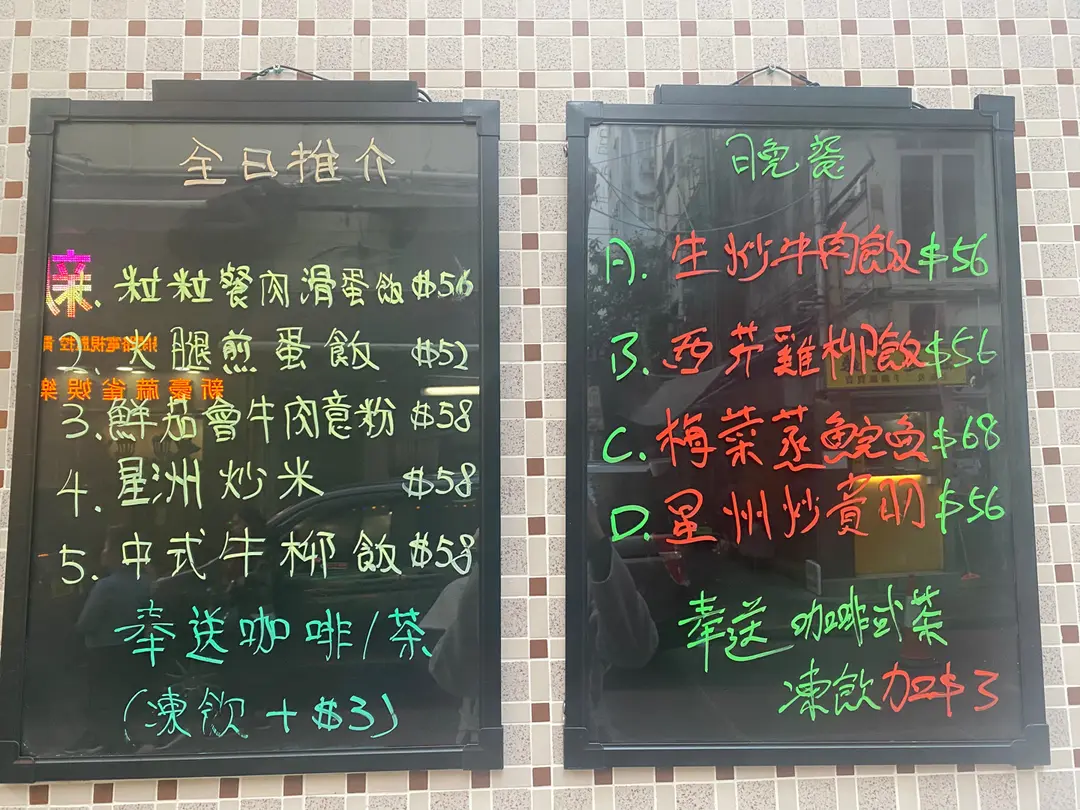 全日推介
1. 粒粒餐肉滑蛋飯 $56
2. 火腿煎蛋飯 $52
3. 鮮茄會牛肉意粉 $58
4. 星洲炒米 $58
5. 中式牛柳飯 $58
奉送咖啡/茶
(凍飲+$3)
日晚餐
A. 生炒牛肉飯 $56
B. 西芹雞柳飯 $56
C. 梅菜蒸鯇魚 $68
D. 星州炒貴刁 $56
奉送咖啡或茶
凍飲加$3
新豪麻雀娛樂